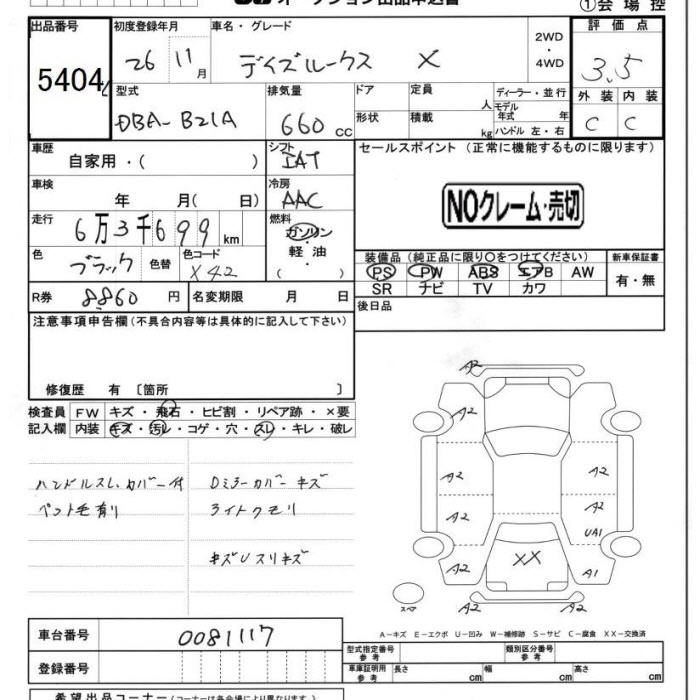 オークション出品申込書
①会場控
出品番号 初度登録年月 車名・グレード 評価点
5404 26 11月 デイズルークス X 2WD・4WD 3.5
型式 排気量 ドア 定員 人 ディーラー・並行 外装 内装
DBA-B21A 660cc 形状 積載 kg モデル年式 年 C C
ハンドル 左・右
車歴 シフト セールスポイント(正常に機能するものに限ります)
自家用・( ) IAT
車検 冷房
年 月( 日) AAC NOクレーム・売切
走行 燃料
6万3千699km ガソリン
軽油
( ・ )
色 色コード 装備品(純正品に限り○をつけてください) 新車保証書
ブラック 色替 X42 PS PW ABS エアB AW 有・無
SR ナビ TV カワ
R券 8860円 名変期限 月 日 後日品
注意事項申告欄(不具合内容等は具体的に記入して下さい)
修復歴 有 〔箇所 〕
検査員 FW キズ・飛石・ヒビ割・リペア跡・×要
記入欄 内装 キズ・汚レ・コゲ・穴・スレ・キレ・破レ
ハンドルスレ カバー付 Dミラーカバーキズ
ペット毛有り ライトクモリ
キズUスリキズ
A2
A2
A2 A2
A2 A2
UA1
XX
A2 A1
A2 A2
スペア
A-キズ E-エクボ U-凹み W-補修跡 S-サビ C-腐食 XX-交換済
車台番号 0081117
型式指定番号 参考 類別区分番号 参考
登録番号 車庫証明用 参考 長さ cm 幅 cm 高さ cm
希望出品コーナー(コーナーは各会場により異なります)